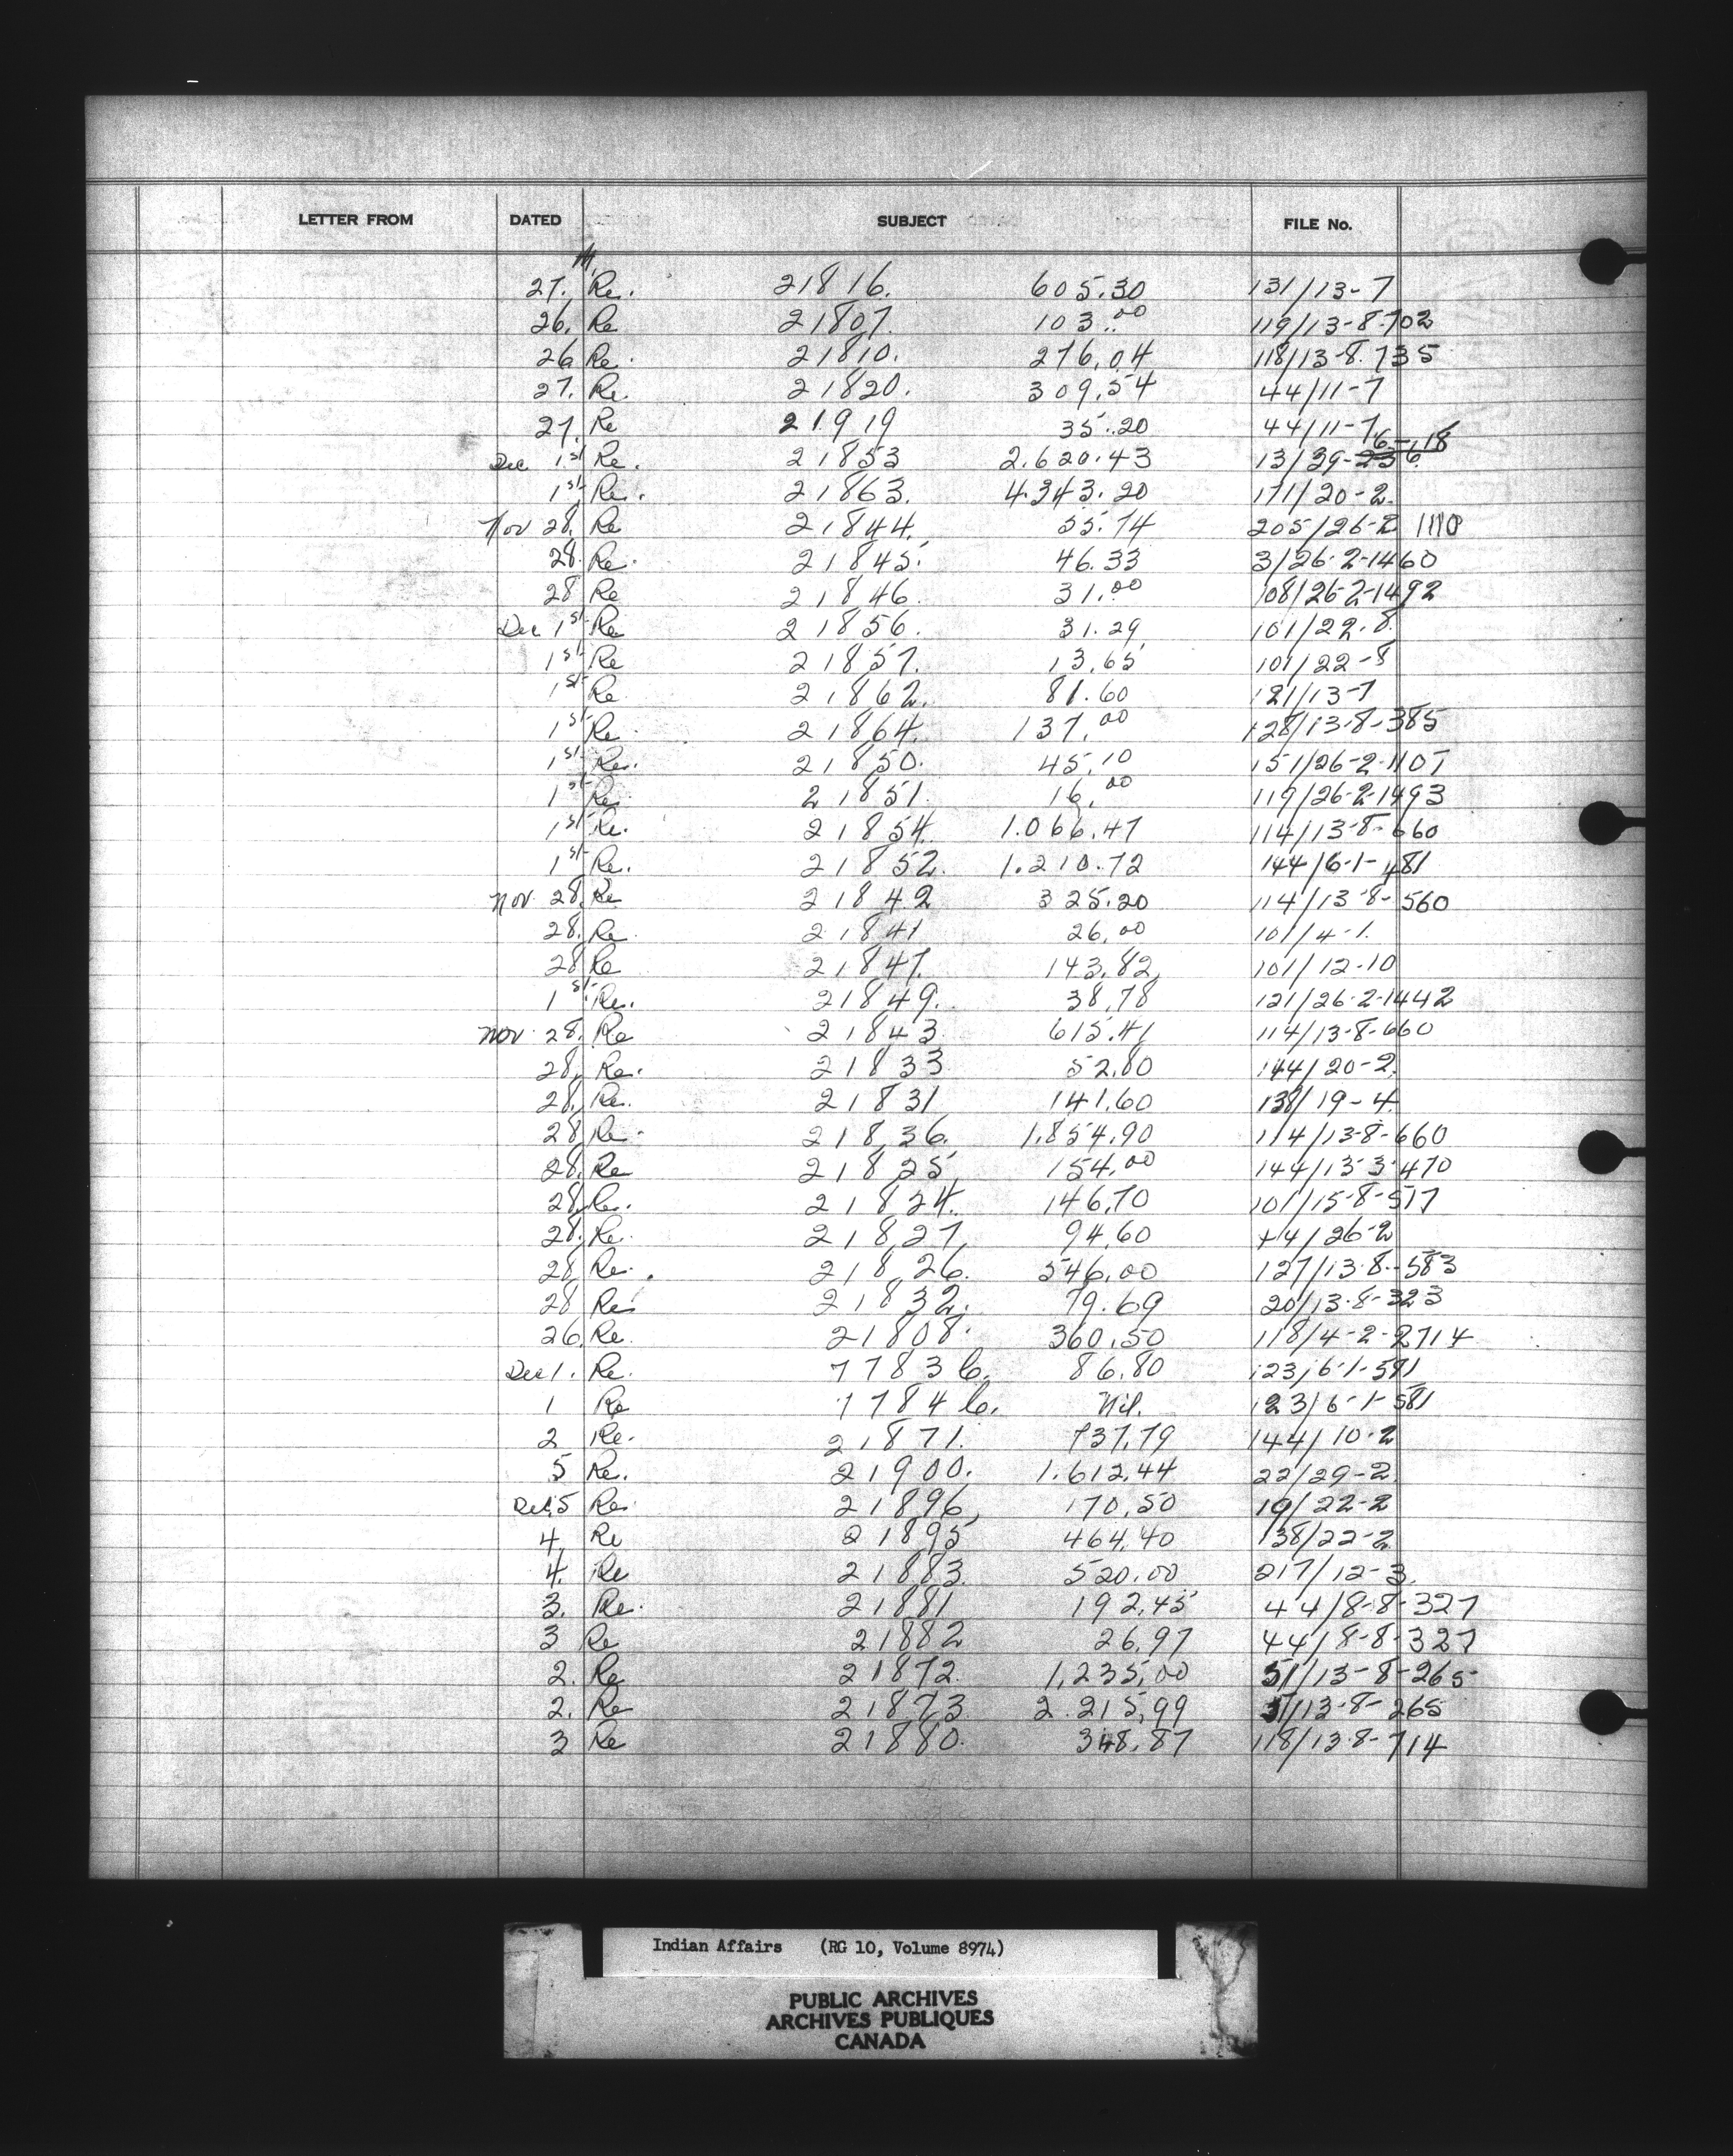 LETTER FROM DATED SUBJECT FILE No.
27. Re. 21816. 605.30 131/13-7
26. Re 21807. 103.00 119/13-8-702
26 Re. 21810. 276.04 118/13-8.735
27. Re. 21820. 309.54 44/11-7
27. Re 21919 35.20 44/11-7
Dec 1st Re. 21853 2.620.43 13/39-236 6-18
1st Re. 21863. 4.343.20 171/20-2.
Nov 28. Re 21844. 55.74 205/26-2 1110
28. Re. 21845. 46.33 3/26-2-1460
28 Re 21846. 31.00 108/26-2-1492
Dec 1st Re 21856. 31.29 101/22-8.
1st Re 21857. 13.65 101/22-8
1st Re 21862. 81.60 121/13-7
1st Re. 21864. 137.00 128/13-8-385
1st Re. 21850. 45.10 151/26-2-1107
1st Re 21851. 16.00 119/26-2-1493
1st Re. 21854. 1.066.47 114/13-8-660
1st Re. 21852. 1.210.72 144/6-1-481
Nov 28. Re 21842 325.20 114/13-8-560
28. Re. 21841 26.00 101/4-1.
28 Re 21847. 143.82 101/12-10
1st Re. 21849. 38.78 121/26-2-1442
Nov. 28. Re 21843 615.41 114/13-8-660
28. Re. 21833 52.80 144/20-2.
28. Re. 21831 141.60 138/19-4.
28 Re. 21836. 1.854.90 114/13-8-660
28. Re 21825 154.00 144/13-3-470
28. Re. 21824. 146.70 101/15-8-517
28. Re. 21827. 94.60 44/26-2
28 Re. 21826. 546.00 127/13-8-583
28 Re 21832. 79.69 20/13-8-323
26. Re. 21808. 360.50 118/4-2-2714
Dec 1. Re. 7783 b. 86.80 123/6-1-591
1 Re 7784 b. Nil. 123/6-1-581
2 Re. 21871. 737.79 144/10-2
5 Re. 21900. 1.612.44 22/29-2
Dec 5 Re 21896, 170.50 19/22-2
4. Re 21895 464.40 138/22-2
4. Re 21883. 520.00 217/12-3.
3. Re. 21881 192.45 44/8-8-327
3 Re 21882 26.97 44/8-8-327
2. Re 21872. 1,235.00 51/13-8-265
2. Re 21873. 2.215.99 51/13-8-265
3 Re 21880. 348.87 118/13-8-714
Indian Affairs (RG 10, Volume 8974)
PUBLIC ARCHIVES
ARCHIVES PUBLIQUES
CANADA